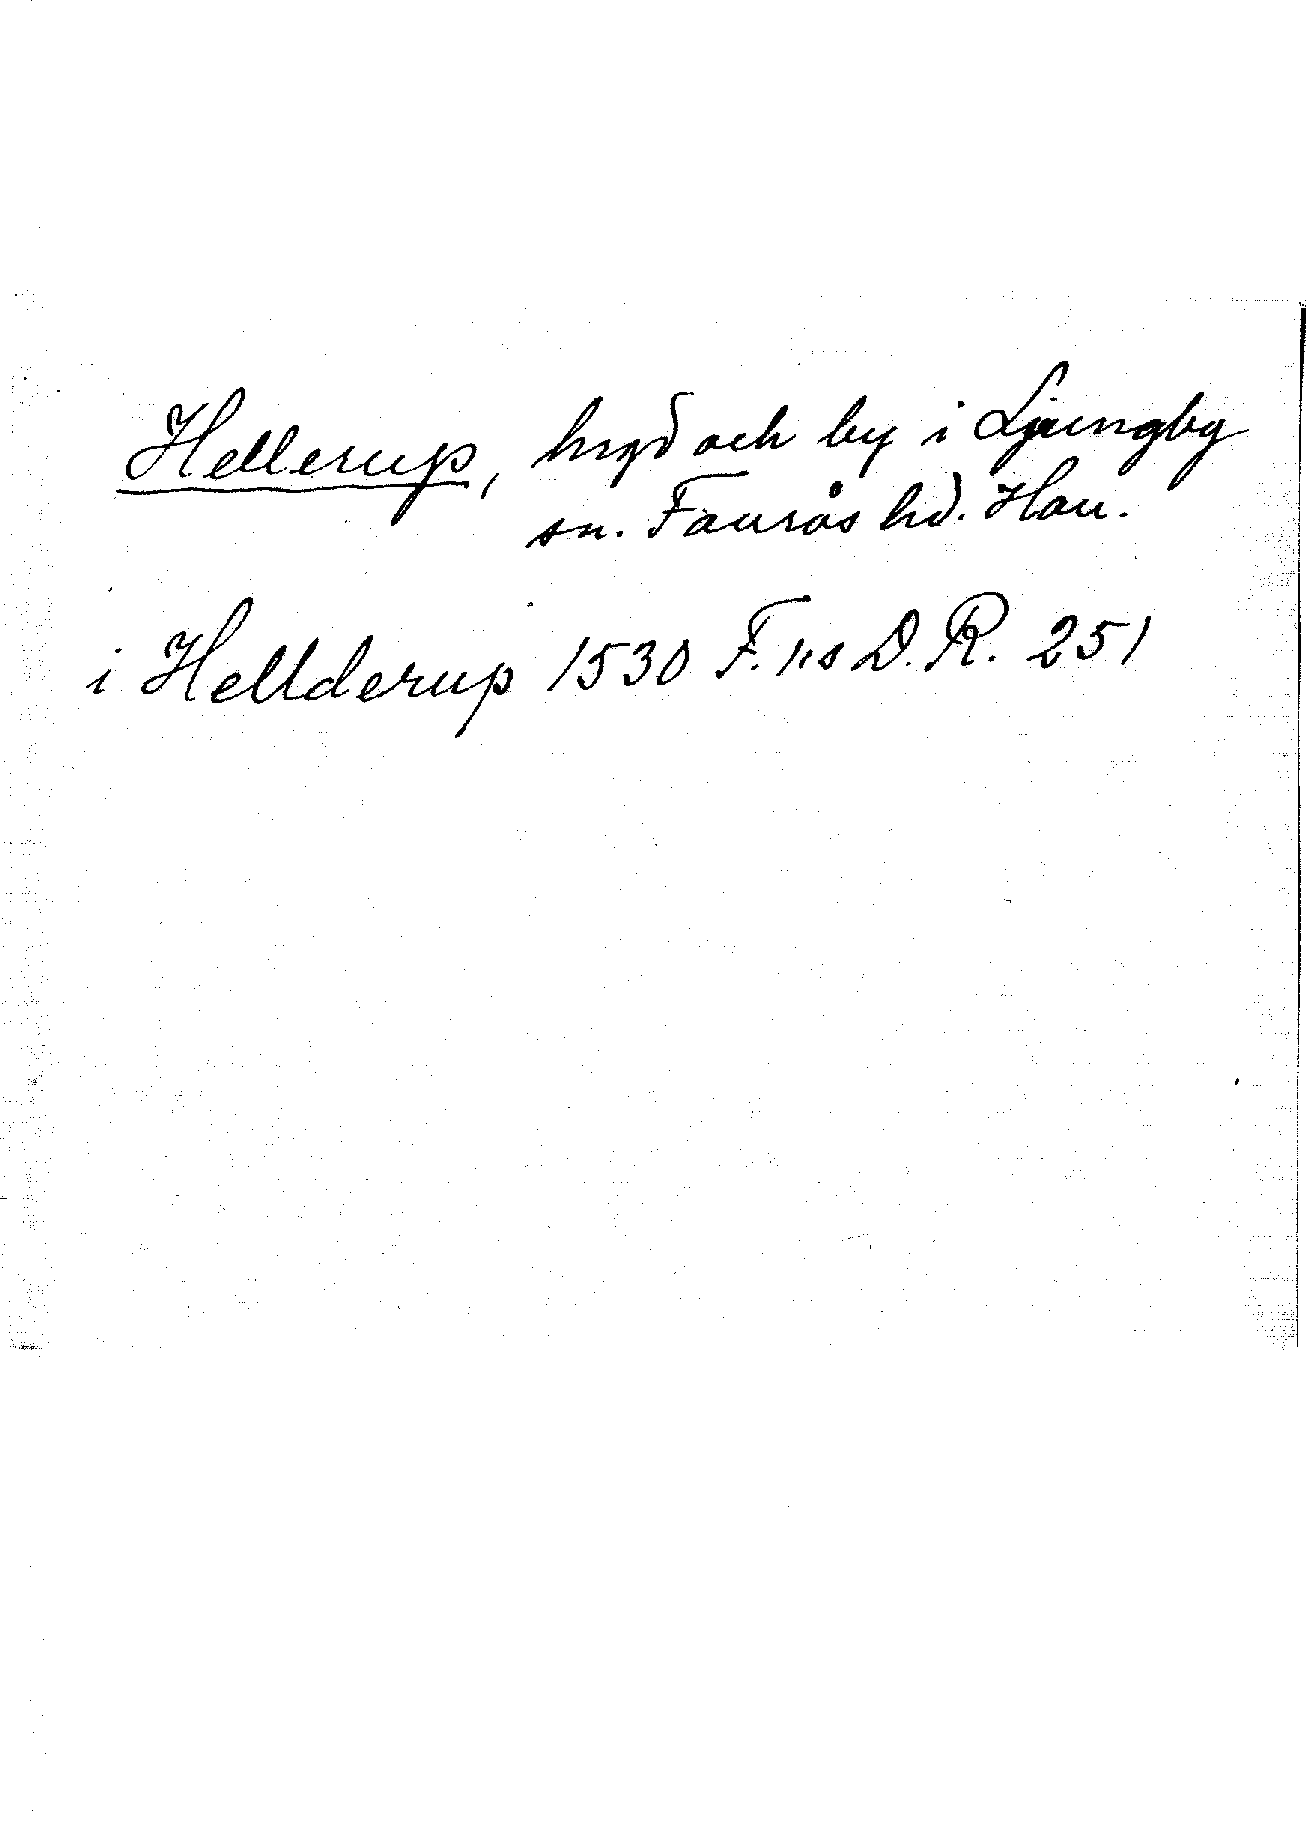 Hellerup, hrgd och by i Ljungby
sn. Faurås hd. Hall.
i Hellderup 1530 F. I:s D. R. 251